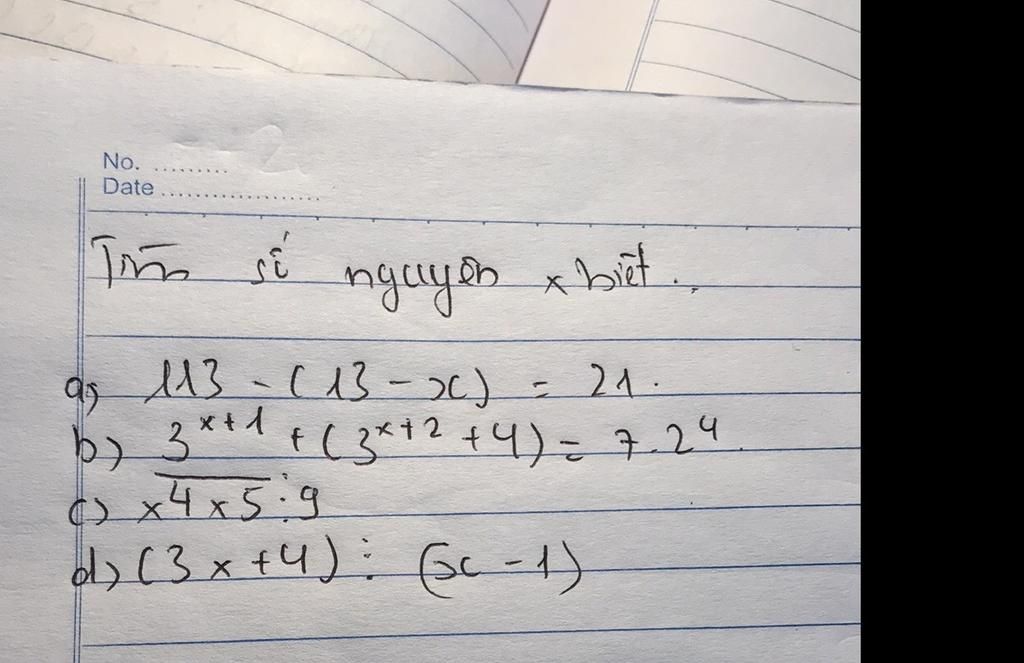 No. .........
Date ....................
Tìm số nguyên x biết.
a) 113 - (13 - x) = 21.
b) 3^{x+1} + (3^{x+2} + 4) = 7.2^4.
c) \overline{x4x5} ⋮ 9
d) (3x+4) ⋮ (x - 1)